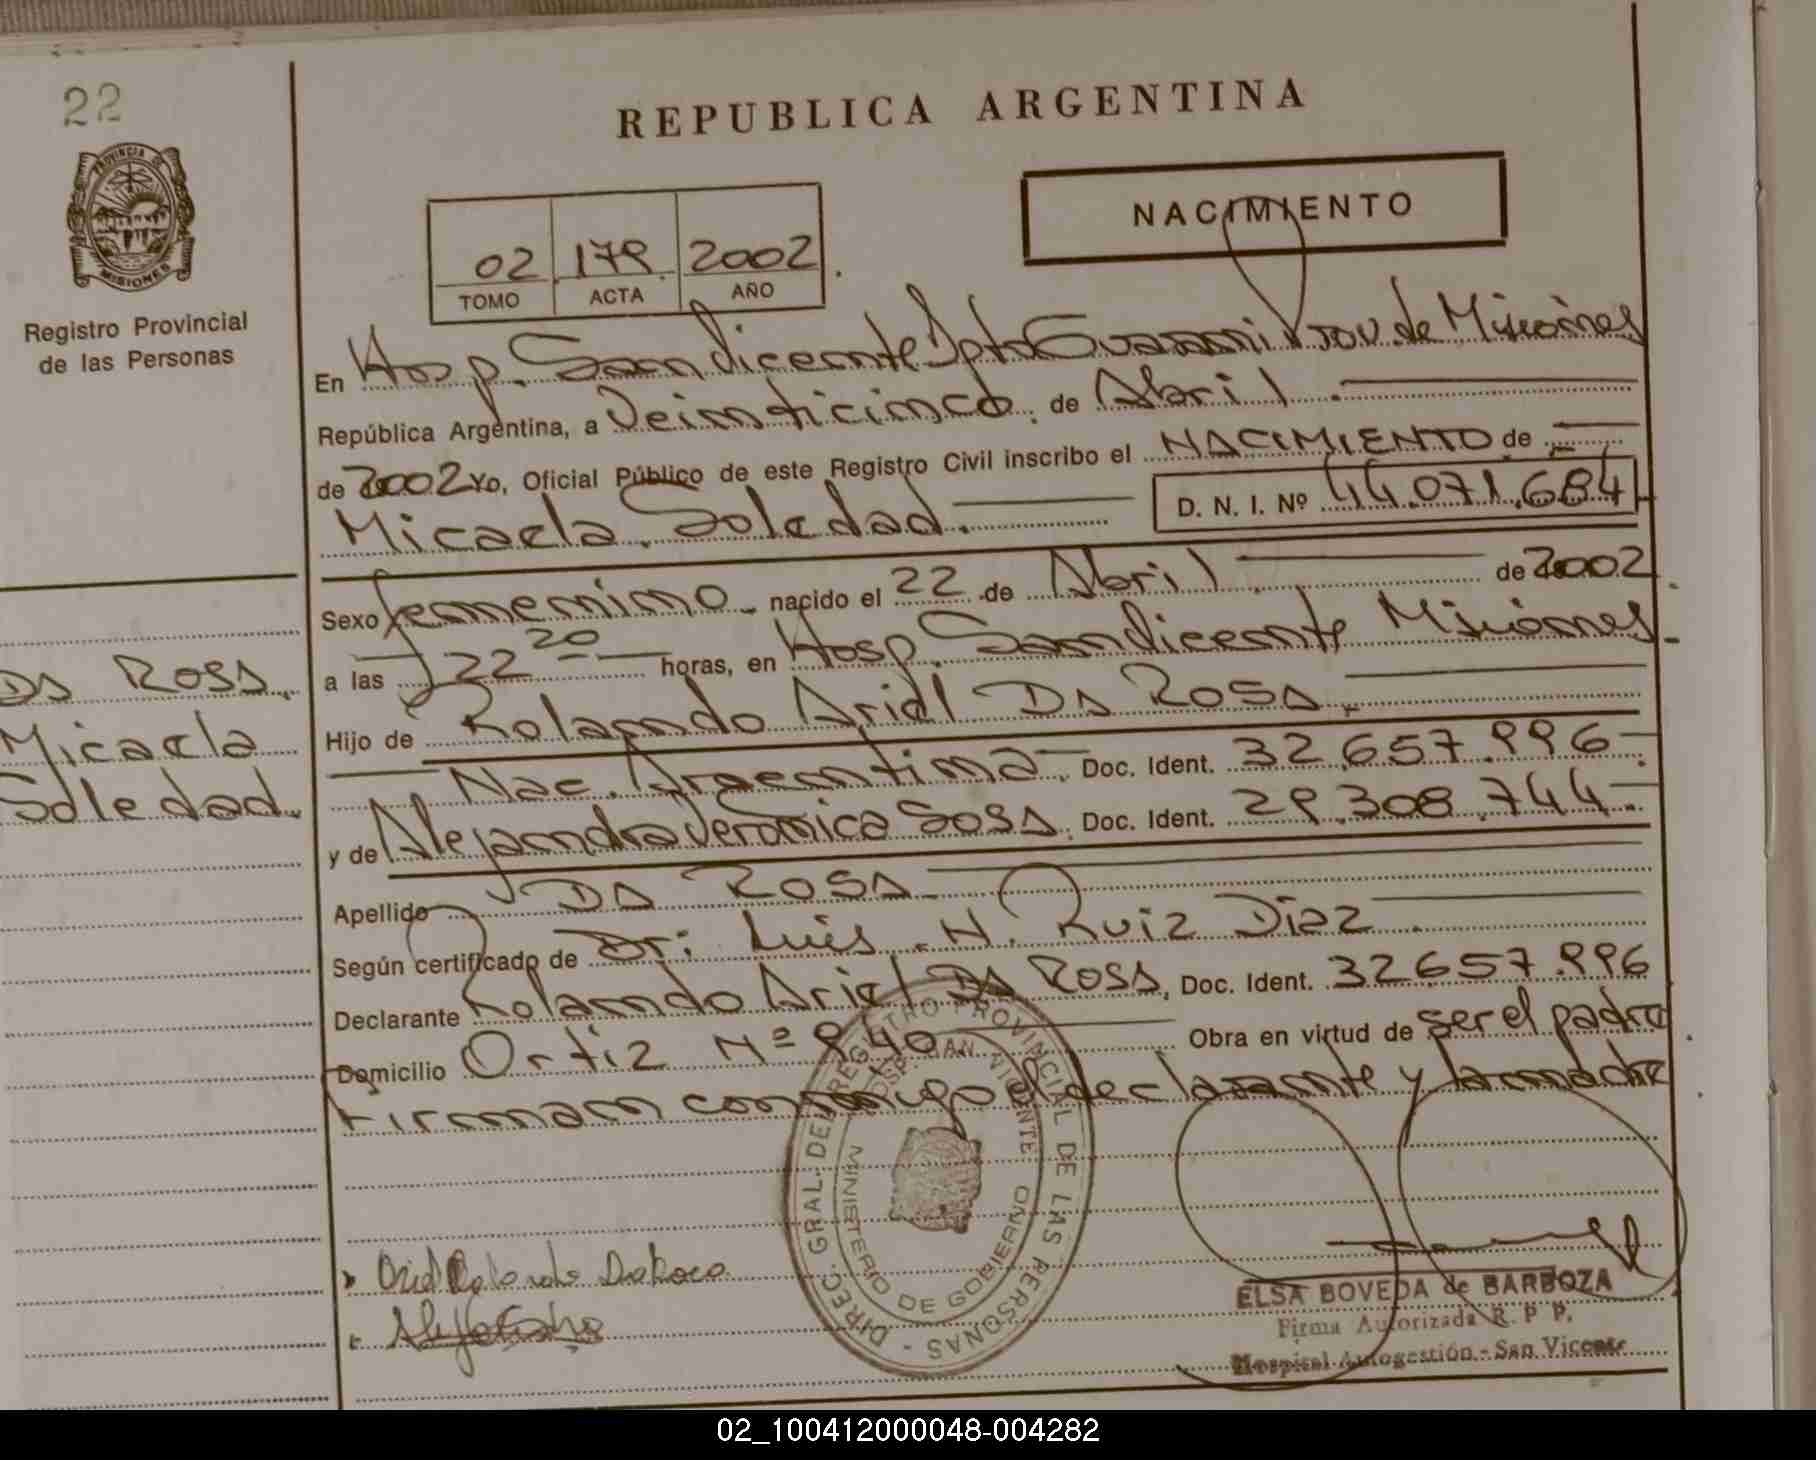 22
PROVINCIA DE
MISIONES
Registro Provincial
de las Personas
Da Rosa.
Micaela
Soledad.
REPUBLICA ARGENTINA
NACIMIENTO
02 179. 2002.
TOMO ACTA AÑO
En Hosp. San Vicente Dpto Guarani Prov. de Misiones
República Argentina, a Veinticinco. de Abril.
de 2002 Yo, Oficial Público de este Registro Civil inscribo el NACIMIENTO de
Micaela Soledad. D. N. I. Nº 44.071.684
Sexo femenino nacido el 22 de Abril de 2002
a las 22 20 horas, en Hosp. San Vicente Misiones
Hijo de Rolando Ariel Da Rosa.
Nac. Argentina. Doc. Ident. 32.657.996
y de Alejandra Verónica Sosa. Doc. Ident. 29.308.744
Apellido Da Rosa
Según certificado de Dr: Luis N. Ruiz Diaz
Declarante Rolando Ariel Da Rosa. Doc. Ident. 32657.996
Domicilio Ortiz Nº 940 Obra en virtud de ser el padre
Firman conmigo el declarante y la madre
DIREC. GRAL. DEL REGISTRO PROVINCIAL DE LAS PERSONAS -
HOSP. SAN VICENTE
MINISTERIO DE GOBIERNO
ELSA BOVEDA de BARBOZA
Firma Autorizada R. P. P.
Hospital Autogestión - San Vicente
02_100412000048-004282